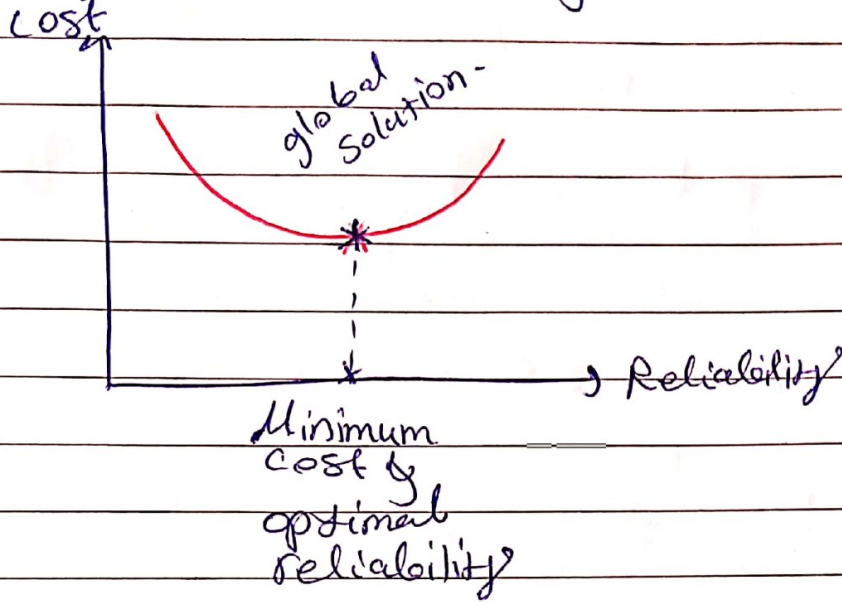 Cost
global
solution-
Reliability
Minimum
Cost &
optimal
reliability